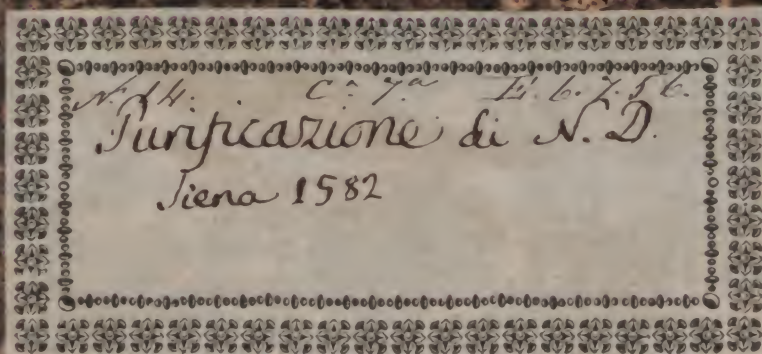 N. 14. C. 7.a
Purificazione di N. D.
Siena 1582